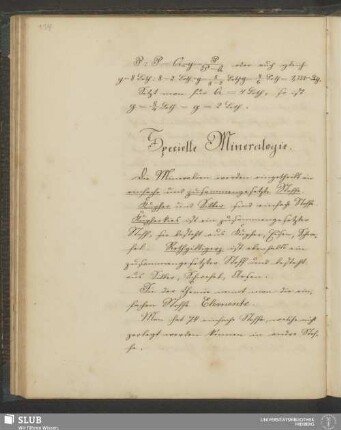 Specielle Mineralogie.
Die Mineralien werden eingetheilt in
einfache und zusammengesetzte Stoffe
Kupfer und Silber sind einfache Stoffe
Kupferkies ist ein zusammengesetzter
Stoff, er besteht aus Kupfer, Eisen, Schwe-
fel. Rothgültigerz ist ebenfalls ein
zusammengesetzter Stoff und besteht
aus Silber, Schwefel, Arsen.
In der Chemie nennt man die ein-
fachen Stoffe Elemente.
Man hat 74 einfache Stoffe, welche nicht
zerlegt werden können in andre Stof-
fe.
SLUB
Wir führen Wissen.
UNIVERSITÄTSBIBLIOTHEK
FREIBERG